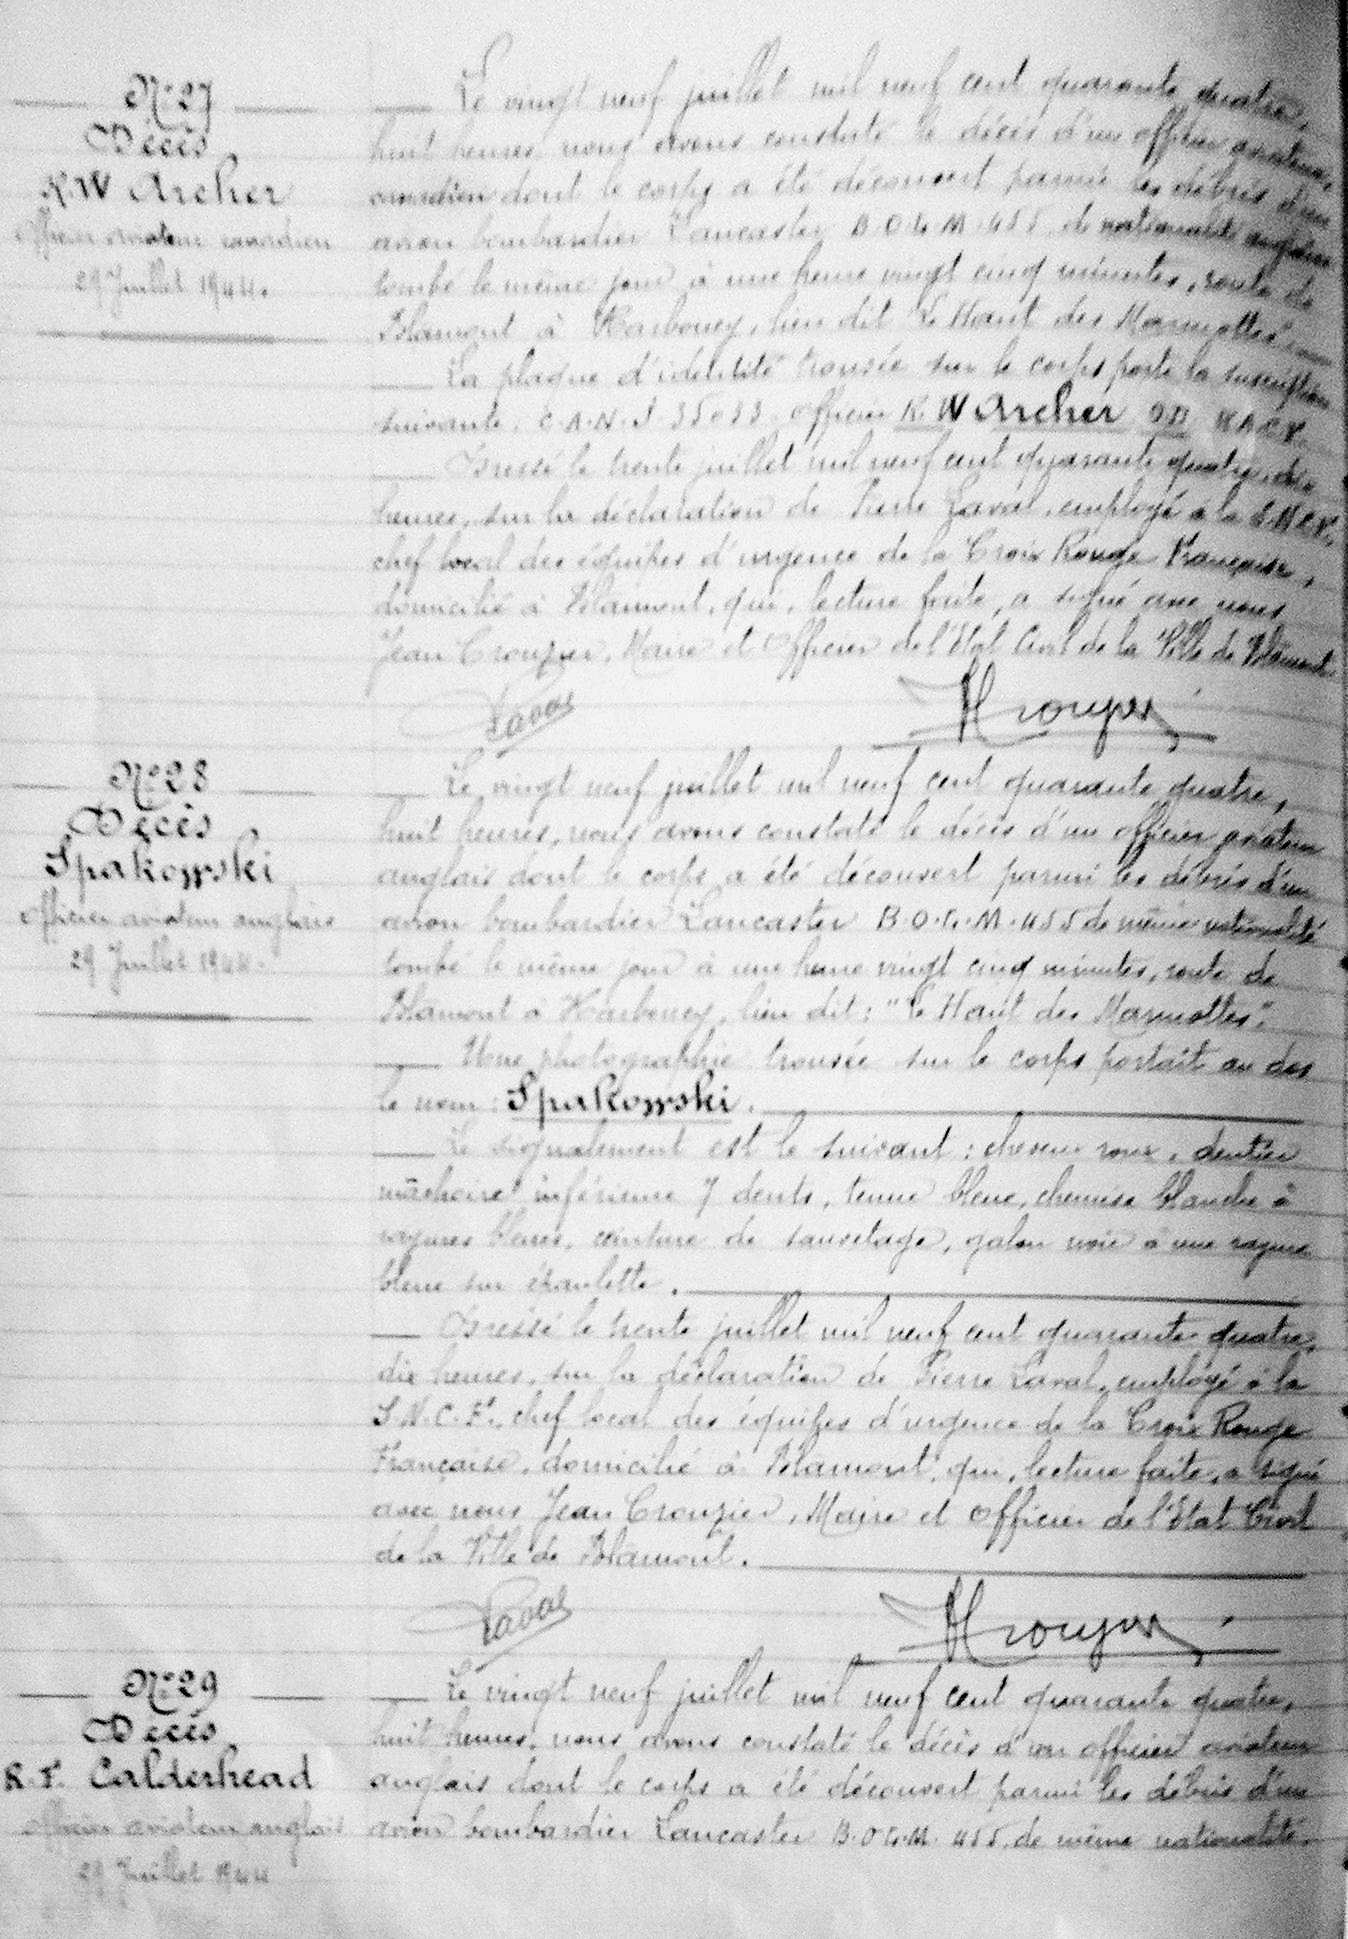 N° 27
Décès
K. W Archer
Officier aviateur canadien
29 Juillet 1944.
Le vingt neuf juillet mil neuf cent quarante quatre,
huit heures, nous avons constaté le décès d'un officier aviateur
canadien dont le corps a été découvert parmi les débris d'un
avion bombardier Lancaster B.O.G.M.455 de nationalité anglaise
tombé le même jour à une heure vingt cinq minutes, route de
Blamont à Harbouey, lieu dit "Le Haut des Marmottes".
La plaque d'identité trouvée sur le corps porte la inscription
suivante. C.A.N.J. 35033. Officier K. W Archer
Dressé le trente juillet mil neuf cent quarante quatre, dix
heures, sur la déclaration de Pierre Laval, employé à la S.N.C.F.,
chef local des équipes d'urgence de la Croix Rouge Française,
domicilié à Blamont, qui, lecture faite, a signé avec nous
Jean Crouzier, Maire et Officier de l'Etat Civil de la Ville de Blamont
Laval Crouzier
N° 28
Décès
Spakowski
Officier aviateur anglais
29 Juillet 1944.
Le vingt neuf juillet mil neuf cent quarante quatre,
huit heures, nous avons constaté le décès d'un officier aviateur
anglais dont le corps a été découvert parmi les débris d'un
avion bombardier Lancaster B.O.G.M.455 de même nationalité
tombé le même jour à une heure vingt cinq minutes, route de
Blamont à Harbouey, lieu dit : "Le Haut des Marmottes".
Une photographie trouvée sur le corps portait au dos
le nom : Spakowski.
Le signalement est le suivant : cheveux roux, dentier
mâchoire inférieure 7 dents, tenue bleue, chemise blanche à
rayures bleues, ceinture de sauvetage, galon noir à une rayure
bleue sur épaulette.
Dressé le trente juillet mil neuf cent quarante quatre,
dix heures, sur la déclaration de Pierre Laval, employé à la
S.N.C.F., chef local des équipes d'urgence de la Croix Rouge
Française, domicilié à Blamont, qui, lecture faite, a signé
avec nous Jean Crouzier, Maire et Officier de l'Etat Civil
de la Ville de Blamont.
Laval Crouzier
N° 29
Décès
R. F. Calderhead
Officier aviateur anglais
29 Juillet 1944
Le vingt neuf juillet mil neuf cent quarante quatre,
huit heures, nous avons constaté le décès d'un officier aviateur
anglais dont le corps a été découvert parmi les débris d'un
avion bombardier Lancaster B.O.G.M. 455. de même nationalité